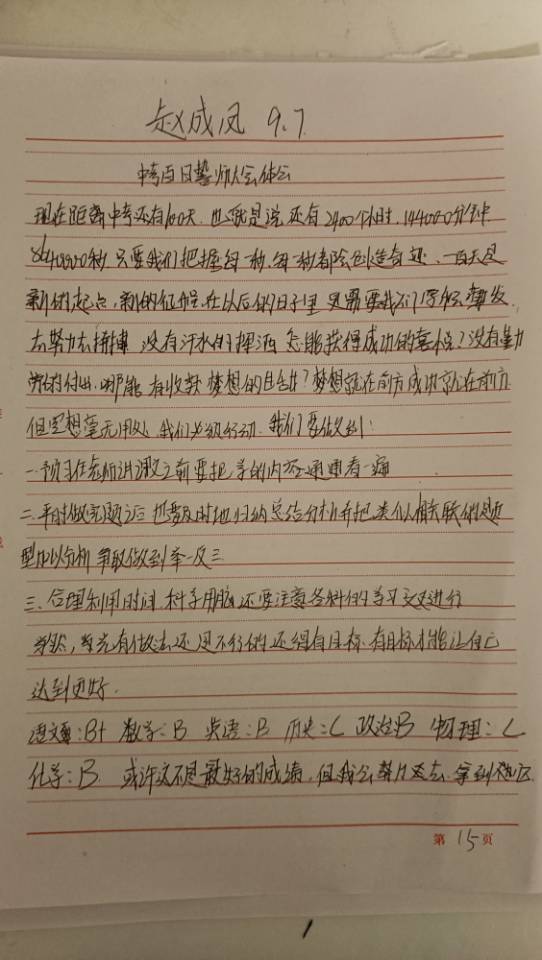 赵成凤 9.7
中考百日誓师大会体会
现在距离中考还有100天.也就是说还有2400个小时.144000分钟
8640000秒.只要我们把握每一秒.每一秒都会创造奇迹.一百天是
新的起点,新的征程.在以后的日子里只需要我们
去努力去拼搏 没有汗水的挥洒 怎能获得成功的喜悦?没有勤
劳的付出.哪能有收获梦想的日子?梦想就在前方成功就在前方
但空想毫无用处.我们必须行动.我们要做到:
一.预习在老师讲课之前要把学的内容通通看一遍
二.平时做完题之后也要及时地归纳总结分析并把类似相关联的题
型加以分析 争取做到举一反三
三.合理利用时间.科学用脑.还要注意各科的学习交叉进行
当然,首先有做法还是不行的还得有目标.有目标才能让自己
达到更好.
语文:B+ 数学:B 英语:B 历史:C 政治B 物理:C
化学:B. 或许这不是最好的成绩.但我会努力去 拿到
第 15 页